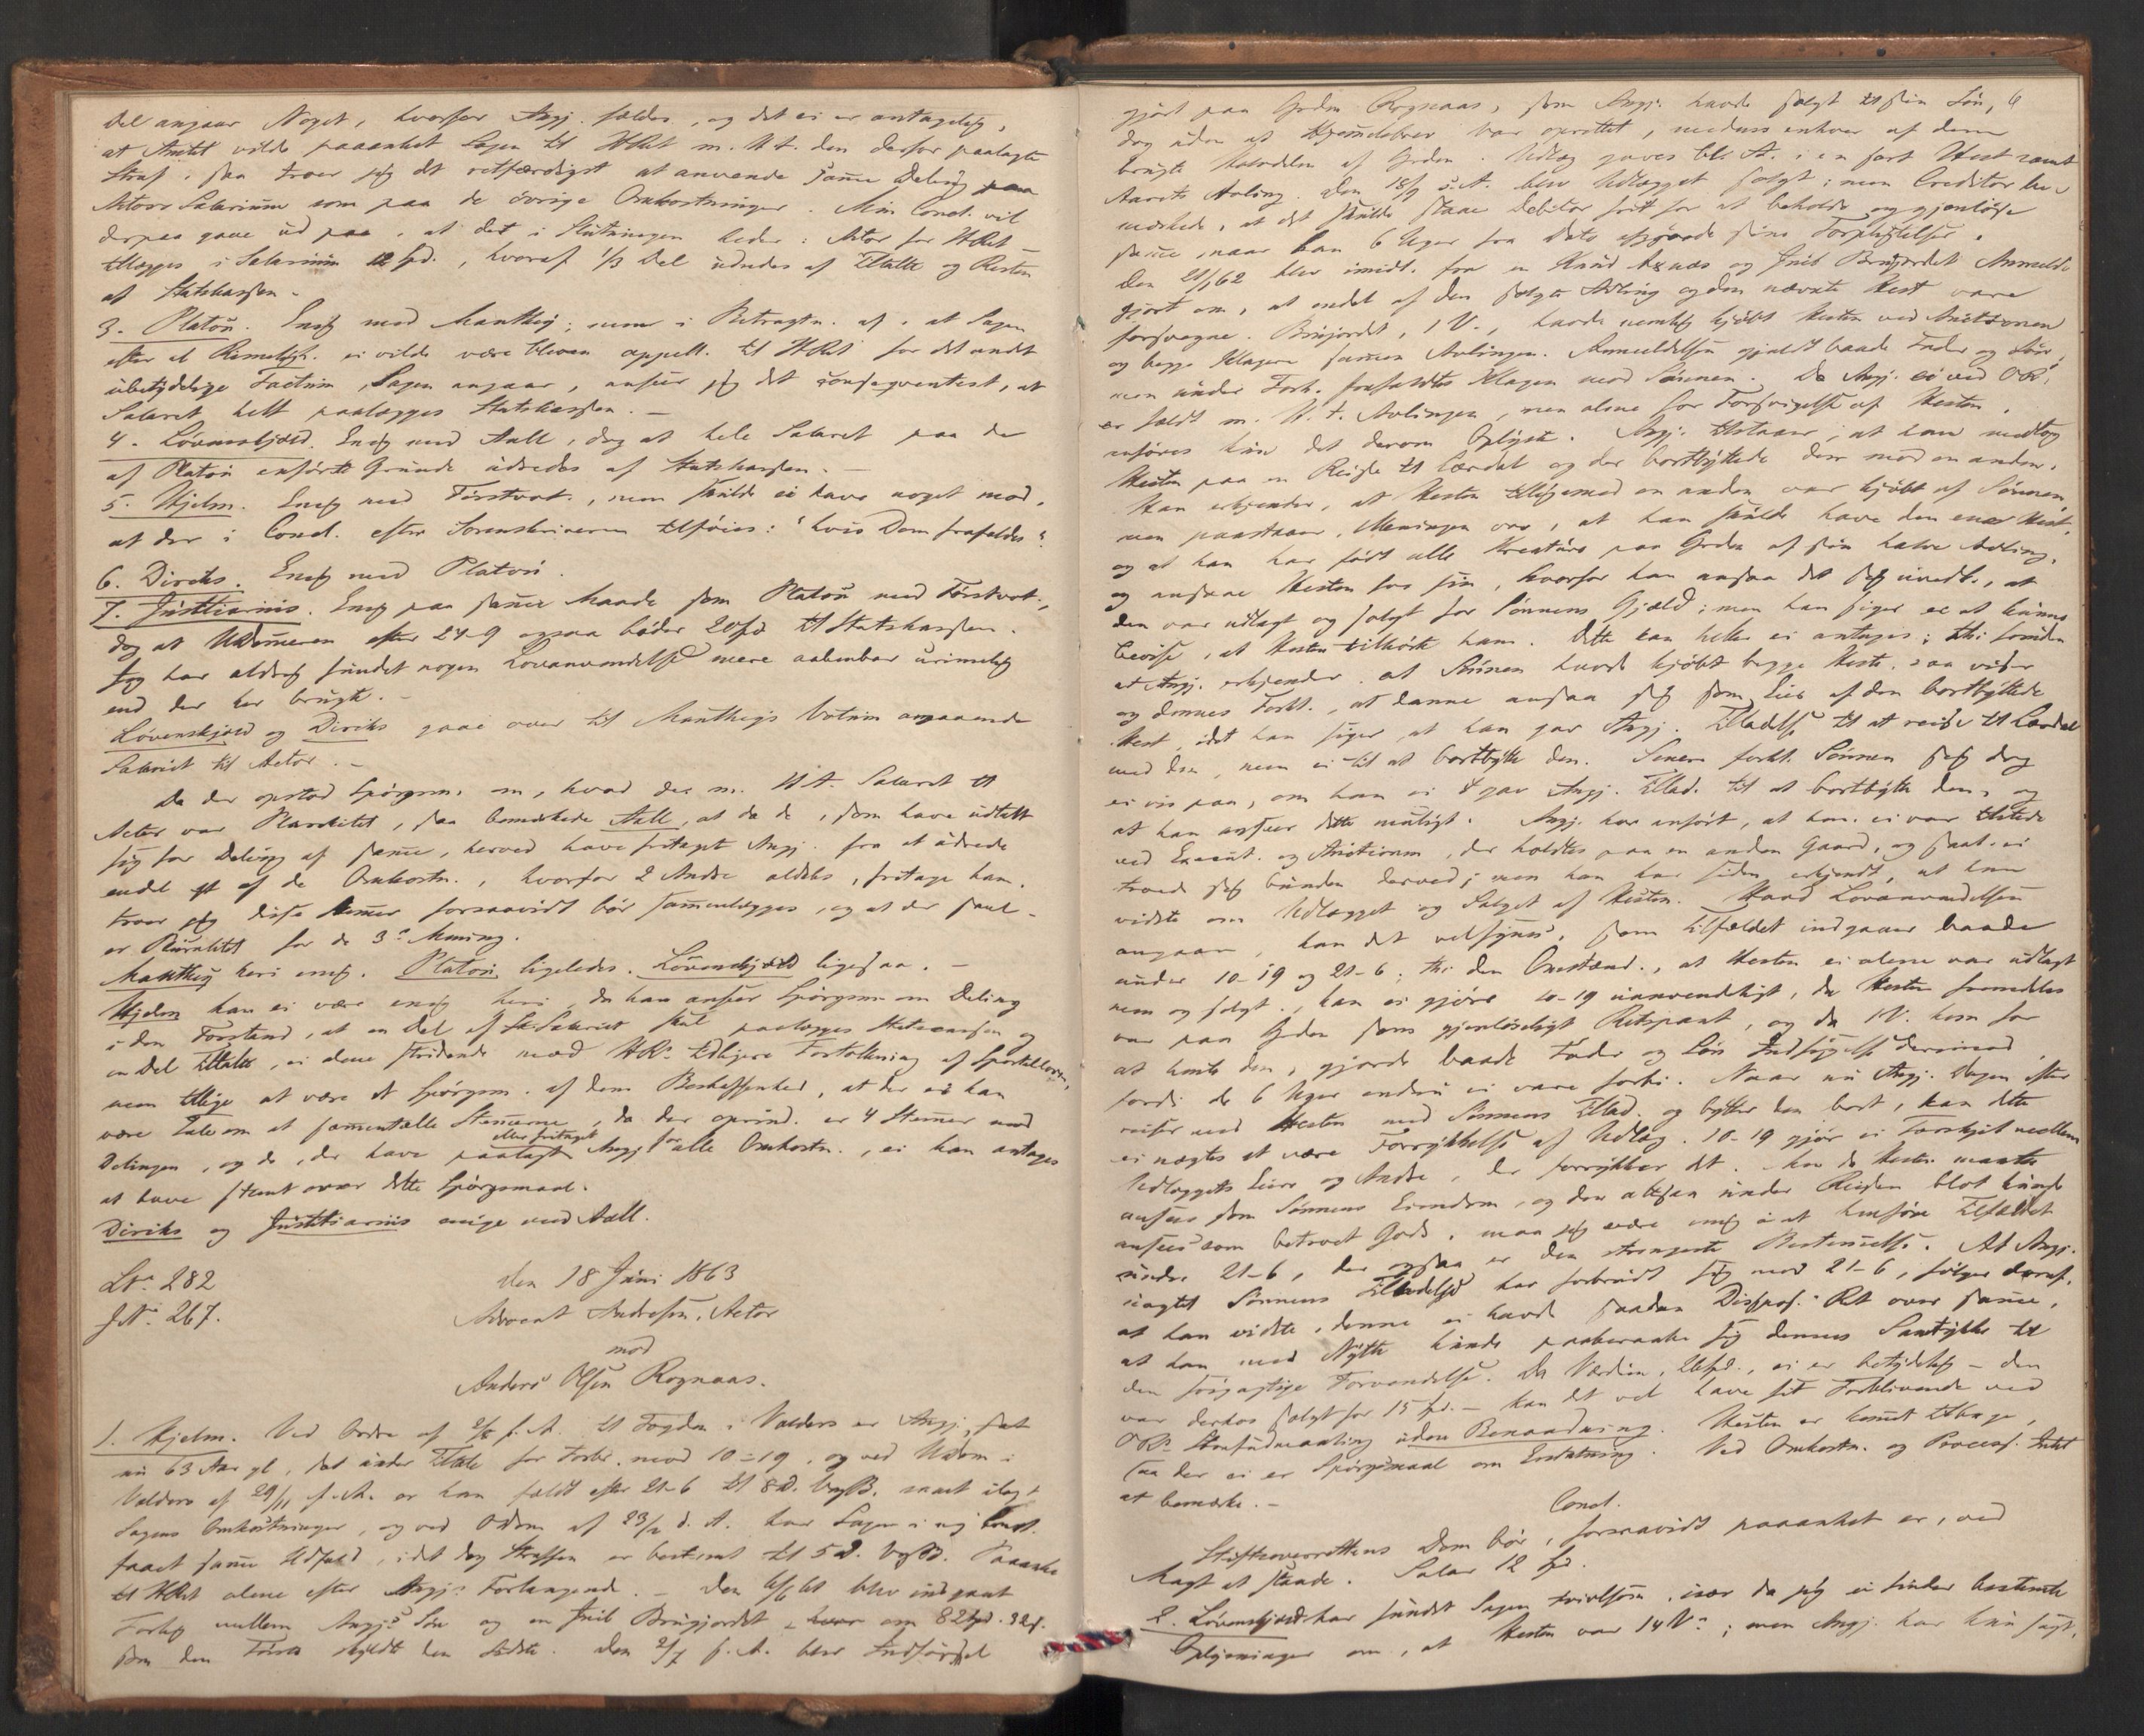 Del angaar Noget, hvorfor Angj. fældes, og det ei er antageligt,
at Amtet vilde paaanket Sagen til HRet m. H. t. den derfor paalagte
Straf, saa troer jeg det retfærdigst at anvende samme Deling paa
Actors Salarium som paa de øvrige Omkostninger. Min Concl. vil
derpaa gaae ud paa, at det i Slutningen heder: Actor for HRet
tillægges i Salarium 12 Spd., hvoraf 1/3 Del udredes af Tiltalte og Resten
af Statskassen.
3. Platou. Enig med Manthey; men i Betragtn. af, at Sagen
efter al Rimeligh. ei vilde være bleven appell. til HRet for det andet
ubetydelige Factum, Sagen angaar, anseer jeg det conseqventest, at
Salaret helt paalægges Statskassen. —
4. Løvenskjold. Enig med Aall, dog at hele Salaret paa de
af Platou anførte Grunde udredes af Statskassen. —
5. Hjelm. Enig med Førstvot., men skulde ei have noget mod,
at der i Concl. efter Sorenskriveren tilføies: "hvis Dom frafaldes".
6. Diriks. Enig med Platou.
7. Justitiarius. Enig paa samme Maade som Platou med Førstvot.,
dog at UDommeren efter 24-9 ogsaa bøder 20 Spd til Statskassen.
Jeg har aldrig fundet nogen Lovanvendelse mere aabenbar urimelig
end den her brugte. -
Løvenskjold og Diriks gaae over til Mantheys Votum angaaende
Salariet til Actor. -
Da der opstod Spørgsm. om, hvad der m. H. t. Salaret til
Actor var Pluralitet, saa bemærkede Aall, at da de, som have udtalt
sig for Deling af samme, herved have fritaget Angj. fra at udrede
endel af de Omkostn., hvorfor 2 Andre aldeles fritage ham,
troer jeg disse Stemmer forsaavidt bør sammenlægges, og at der saal.
er Pluralitet for de 3es Mening.
Manthey heri enig. Platou ligeledes. Løvenskjold ligesaa. —
Hjelm kan ei være enig heri, da han anseer Spørgsm. om Deling
i den Forstand, at en Del af Salariet skal paalægges Statscassen og
en Del Tiltalte, ei alene stridende mod HRs tidligere Fortolkning af Sportelloven,
men tillige at være et Spørgsm. af den Beskaffenhed, at der ei kan
være Tale om at sammentælle Stemmerne, da der oprind. er 4 Stemmer mod
Delingen, og de, der have paalagt eller fritaget Angj. for alle Omkostn., ei kan antages
at have stemt over dette Spørgsmaal.
Diriks og Justitiarius enige med Aall.
LNo. 282
JNo. 267.
den 18 Juni 1863
Advocat Andresen, Actor
mod
Anders Olsen Rognaas.
1. Hjelm. Ved Ordre af f. A. til Fogden i Valders er Angj.,
nu 63 Aar gl., sat under Tiltale for Forbr. mod 10-19, og ved UDom i
Valders af 29/11 f. A. er han fældt efter 21-6 til 8 D. VogB. samt ilagt
Sagens Omkostninger, og ved ODom af 23/2 d. A. har Sagen i sig
faaet samme Udfald, idet dog Straffen er bestemt til 5 D. VogB. Paaanke
til HRet alene efter Angj.s Forlangende. — Den blev indgaaet
Forlig mellem Angj.s Søn og en Guldb Brugjordet om 82 Spd. 32 s.
som den Første skyldte den Sidste. Den 2/7 f. A. blev Indførsel
gjort paa Grden Rognaas, som Angj. havde solgt til sin Søn,
dog uden at Hjemmelsbrev var oprettet, medens enhver af dem
brugte Halvdelen af Grden. Udlæg gaves bl. A. i en sort Hest samt
Aarets Avling. Den 18/9 s. A. blev Udlægget solgt; men Creditor be-
mærkede, at det skulde staae Debitor frit for at beholde og gjenløse
samme, naar han 6 Uger fra Dato afgjorde sine Forpligtelser.
Den blev imidl. fra en Knud og Guldb Brugjordet Anmeldelse
gjort om, at endel af den solgte Avling og den nævnte Hest vare
forsvegne. Brujordet, 1 V., havde nemlig kjøbt Hesten ved Auctionen
og begge Klagere sammen Avlingen. Anmeldelsen gjaldt baade Fader og Søn,
men under Forh. frafaldtes Klagen mod Sønnen. Da Angj. ei ved OR.
er fældt m. H. t. Avlingen, men alene for Forsvigelse af Hesten,
anføres kun det derom Oplyste. Angj. tilstaaer, at han medtog
Hesten paa en Reise til Lærdal og der bortbyttede den mod en anden.
Han erkjender, at Hesten tilligemed en anden var kjøbt af Sønnen,
men paastaaer, Meningen var, at han skulde have den ene Hest,
og at han har født alle Kreature paa Grden af sin halve Avling,
og ansaae Hesten for sin, hvorfor han ansaa det sig uvedk., at
den var udlagt og solgt for Sønnens Gjæld; men han siger ei at kunne
bevise, at Hesten tilhørte ham. Dette kan heller ei antages; thi foruden
at Angj. erkjender, at Sønnen havde kjøbt begge Heste, saa viser
og dennes Forkl., at denne ansaa sig som Eier af den bortbyttede
Hest, idet han siger, at han gav Angj. Tilladelse til at reise til Lærdal
med den, men ei til at bortbytte den. Senere forkl. Sønnen sig dog
ei vis paa, om han ei gav Angj. Tillad. til at bortbytte den, og
at han anseer dette muligt. Angj. har anført, at han ei var tilstede
ved Execut. og Auctionen, der holdtes paa en anden Gaard, og saal. ei
troede sig bunden derved; men han har siden erkjendt, at han
vidste om Udlægget og Salget af Hesten. Hvad Lovanvendelsen
angaaer, kan det vel synes, som Tilfældet indgaaer baade
under 10-19 og 21-6; thi den Omstænd., at Hesten ei alene var udlagt
men og solgt, kan ei gjøre 10-19 uanvendeligt, da Hesten fremdeles
var paa Grden som gjenløseligt Retspant, og da 1 V. kom for
at hente den, gjorde baade Fader og Søn Indsigelse derimod,
fordi de 6 Uger endnu ei vare forbi. Naar nu Angj. Dagen efter
reiser med Hesten med Sønnens Tillad. og bytter den bort, kan dette
ei nægtes at være Forrykkelse af Udlæg. 10-19 gjør ei Forskjel mellem
Udlæggets Eiere og Andre, der forrykker det. Men da Hesten maatte
ansees som Sønnens Eiendom, og den altsaa under Reisen blot kunde
ansees som betroet Gods, maa jeg være enig i at henføre Tilfældet
under 21-6, der ogsaa er den strengeste Bestemmelse. At Angj.
uagtet Sønnens Tilladelse har forbrudt sig mod 21-6, følger deraf,
at han vidste, denne ei havde saadan Dispos. Ret over samme,
at han med Nytte kunde paaberaabe sig dennes Samtykke til
den svigagtige Forvendelse. Da Værdien, 26 Spd., ei er betydelig — den
var derhos solgt for 15 Spd. — kan det vel have sit Forblivende ved
ORs Straffudmaaling uden Benaadning. Hesten er kommet tilbage,
saa der ei er Spørgsmaal om Erstatning. Ved Omkostn. og Process. Intet
at bemærke. —
Concl.
Stiftsoverrettens Dom bør, forsaavidt paaanket er, ved
Magt at stande. Salar 12 Spd.
2. Løvenskjold har fundet Sagen tvivlsom, især da jeg ei finder bestemte
Oplysninger om, at Hesten var 1 V.s; men Angj. har kun sagt,